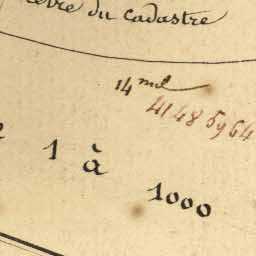 du cadastre
14 mil
41 48 59 64
1 à 1000